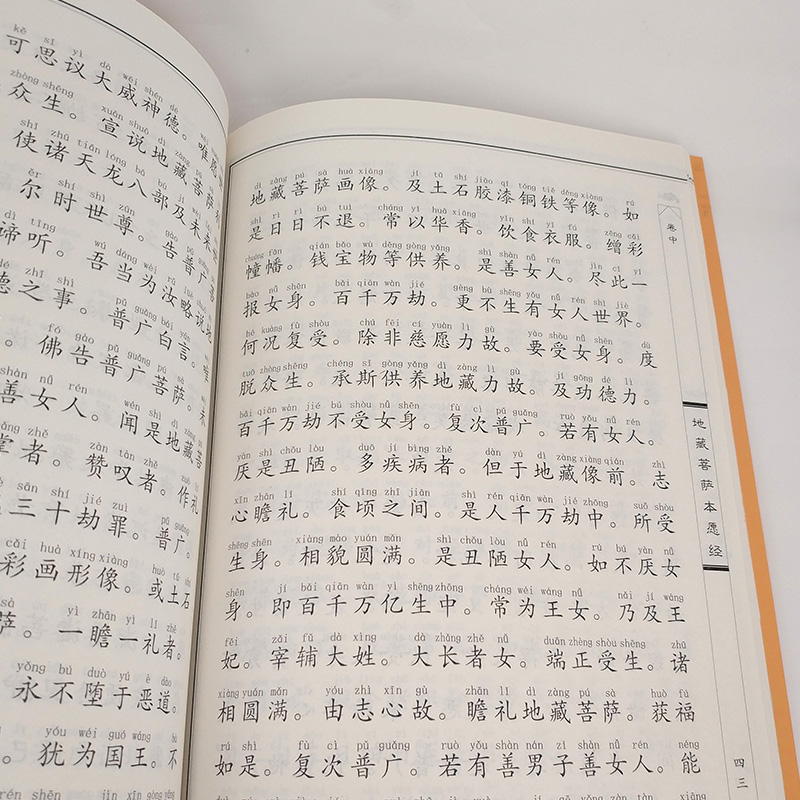 kě sī yì dà wēi shén dé
可思议大威神德。唯愿
zhòng shēng xuān shuō dì zàng pú sà
众生。宣说地藏菩萨利
shǐ zhū tiān lóng bā bù jí wèi lái
使诸天龙八部及未来
ěr shí shì zūn gào pǔ guǎng pú
尔时世尊。告普广菩
dì tīng wú dāng wèi rǔ lüè shuō dì
谛听。吾当为汝略说地
dé zhī shì pǔ guǎng bái yán wéi
德之事。普广白言。唯
fó gào pǔ guǎng pú sà wèi
佛告普广菩萨。未
shàn nǚ rén wén shì dì zàng pú
善女人。闻是地藏菩
zhǎng zhě zàn tàn zhě zuò lǐ
掌者。赞叹者。作礼
sān shí jié zuì pǔ guǎng
三十劫罪。普广。
cǎi huà xíng xiàng huò tǔ shí
彩画形像。或土石
sà yì zhān yì lǐ zhě
萨。一瞻一礼者。
yǒng bú duò yú è dào
永不堕于恶道。
yóu wéi guó wáng bù
犹为国王。不
dì zàng pú sà huà xiàng jí tǔ shí jiāo qī tóng tiě děng xiàng rú
地藏菩萨画像。及土石胶漆铜铁等像。如
shì rì rì bú tuì cháng yǐ huā xiāng yǐn shí yī fú zēng cǎi
是日日不退。常以华香。饮食衣服。缯彩
chuáng fān qián bǎo wù děng gòng yǎng shì shàn nǚ rén jìn cǐ yí
幢幡。钱宝物等供养。是善女人。尽此一
bào nǚ shēn bǎi qiān wàn jié gèng bù shēng yǒu nǚ rén shì jiè
报女身。百千万劫。更不生有女人世界。
hé kuàng fù shòu chú fēi cí yuàn lì gù yào shòu nǚ shēn dù
何况复受。除非慈愿力故。要受女身。度
tuō zhòng shēng chéng sī gòng yǎng dì zàng lì gù jí gōng dé lì
脱众生。承斯供养地藏力故。及功德力。
bǎi qiān wàn jié bú shòu nǚ shēn fù cì pǔ guǎng ruò yǒu nǚ rén
百千万劫不受女身。复次普广。若有女人。
yàn shì chǒu lòu duō jí bìng zhě dàn yú dì zàng xiàng qián zhì
厌是丑陋。多疾病者。但于地藏像前。志
xīn zhān lǐ shí qǐng zhī jiān shì rén qiān wàn jié zhōng suǒ shòu
心瞻礼。食顷之间。是人千万劫中。所受
shēng shēn xiàng mào yuán mǎn shì chǒu lòu nǚ rén rú bú yàn nǚ
生身。相貌圆满。是丑陋女人。如不厌女
shēn jí bǎi qiān wàn yì shēng zhōng cháng wéi wáng nǚ nǎi jí wáng
身。即百千万亿生中。常为王女。乃及王
fēi zǎi fǔ dà xìng dà zhǎng zhě nǚ duān zhèng shòu shēng zhū
妃。宰辅大姓。大长者女。端正受生。诸
xiàng yuán mǎn yóu zhì xīn gù zhān lǐ dì zàng pú sà huò fú
相圆满。由志心故。瞻礼地藏菩萨。获福
rú shì fù cì pǔ guǎng ruò yǒu shàn nán zǐ shàn nǚ rén néng
如是。复次普广。若有善男子善女人。能
卷中
地藏菩萨本愿经
四三